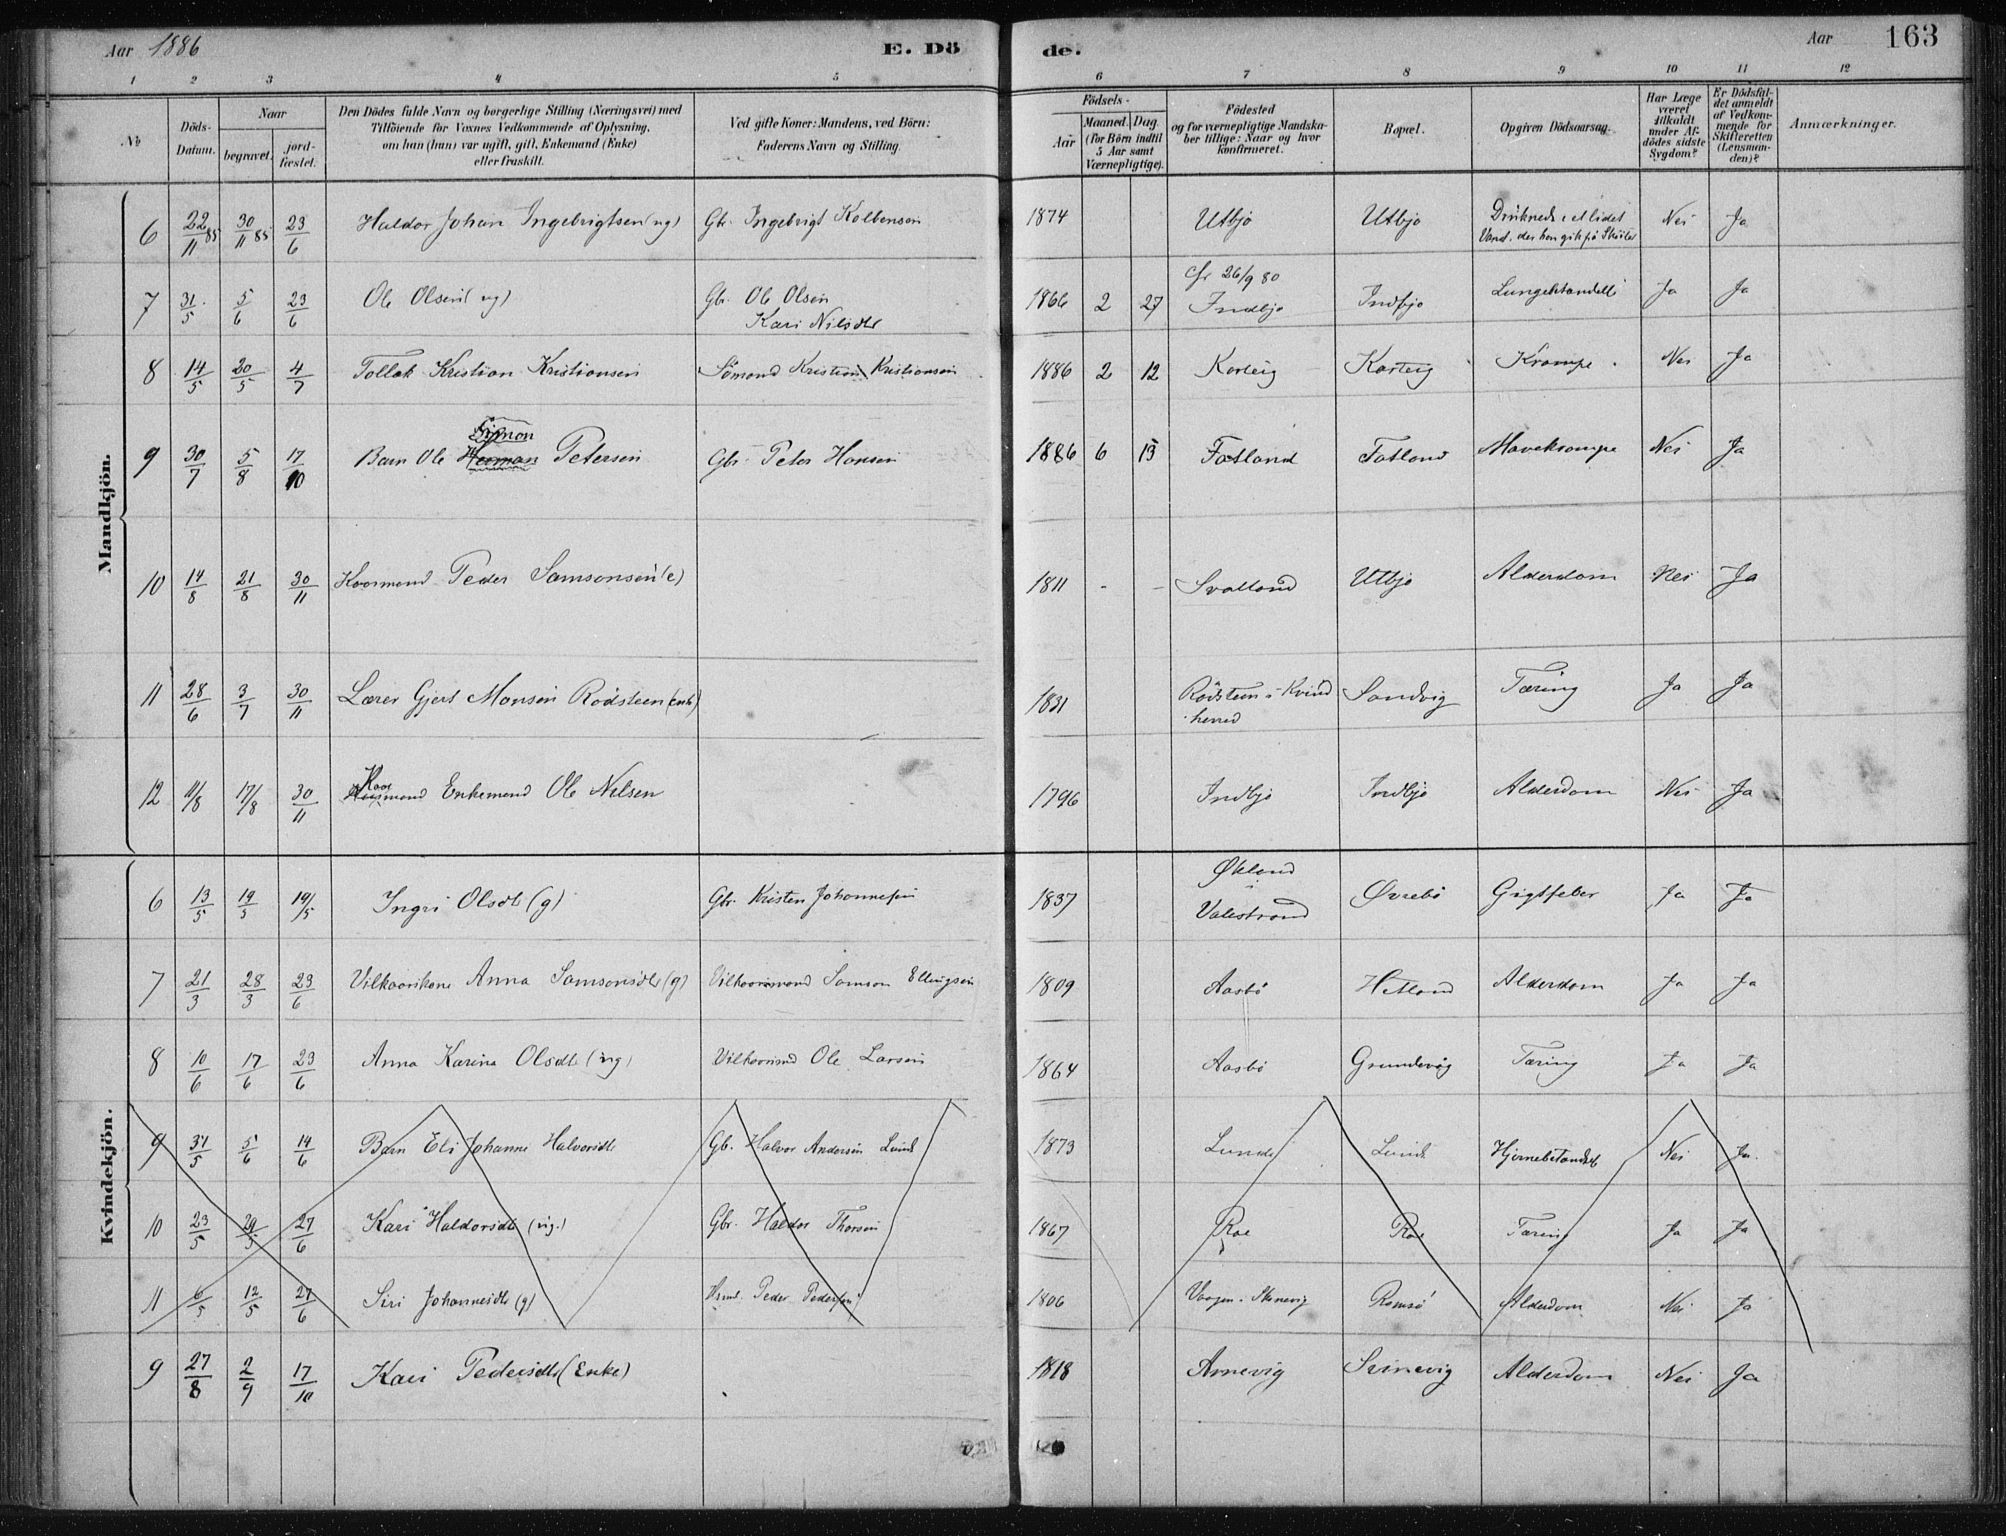 Aar 1886 E. Dö de. Aar 163
1 2 3 4 5 6 7 8 9 10 11 12
No Döds-Datum. Naar begravet. jordfæstet. Den Dödes fulde Navn og borgerlige Stilling (Næringsvei) med Tilföiende for Voxnes Vedkommende af Oplysning, om han (hun) var ugift, gift, Enkemand (Enke) eller fraskilt. Ved gifte Koner: Mandens, ved Börn: Faderens Navn og Stilling. Födsels- Aar Maaned. Dag. (for Börn indtil 5 Aar samt Værnepligtige). Födested og for værnepligtige Mandskaber tillige: Naar og hvor konfirmeret. Bopæl. Opgiven Dödsaarsag. Har Læge været tilkaldt under Afdödes sidste Sygdom? Er Dödsfaldet anmeldt af Vedkommende for Skifteretten (Lensmanden)? Anmærkninger.
Mandkjön.
6 22/11 85 30/11 85 23/6 Haldor Johan Ingebrigtsen (ug) Gbr. Ingebrigt Kolbensen 1874 Utbjo Utbjo Druknede i et lidet Vand, der han gik på Skøiter Nei Ja
7 31/5 5/6 23/6 Ole Olsen (ug) Gbr. Ole Olsen Kari Nilsdtr 1866 2 27 Cfr 26/9 80 Indbjo Indbjo Ja Ja
8 14/5 20/5 4/7 Tollak Kristian Kristiansen Sömand Kristian Kristiansen 1886 2 12 Korteig Korteig Krampe Nei Ja
9 30/7 5/8 17/10 Barn Ole Herman Simon Petersen Gbr. Peter Hansen 1886 6 13 Fatland Fatland Mavekrampe Nei Ja
10 14/8 21/8 30/11 Kaarmand Peder Samsonsen (e) 1811 - - Svolland Utbjo Alderdom Nei Ja
11 28/6 3/7 30/11 Lærer Gjert Monsen Rødsteen (enk) 1831 Rødsteen i Kvindherred Sandvig Tæring Ja Ja
12 11/8 17/8 30/11 Kaarmand Enkemand Ole Nilsen 1796 Indbjo Indbjo Alderdom Nei Ja
Kvindekjön.
6 13/5 19/5 19/5 Ingri Olsdtr (g) Gbr. Kristen Johannesen 1837 Økland i Valestrand Øvrebø Gigtfeber Ja Ja
7 21/3 28/3 23/6 Vilkaarskone Anna Samsonsdtr (g) Vilkaarsmand Samson Ellingsen 1809 Aasbø Hetland Alderdom Ja Ja
8 10/6 17/6 23/6 Anna Karina Olsdtr (ug) Vilkaarsmd Ole Larsen 1864 Aasbø Grundevåg Tæring Ja Ja
9 31/5 5/6 14/6 Barn Eli Johanne Halvorsdtr Gb. Halvor Andersen Lund 1873 Lunde Lunde Hjernebetændelse Nei Ja
10 23/5 29/5 27/6 Kari Haldorsdtr (ug.) Gbr. Haldor Thorsen 1867 Roe Roe Tæring Ja Ja
11 6/5 12/5 27/6 Siri Johannesdtr (g) Hsmd. Peder Pedersen 1806 Vaagen i Skonevig Romsø Alderdom Nei Ja
9 27/8 2/9 17/10 Kari Pedersdtr (Enke) 1818 Arnevig Svinevig Alderdom Nei Ja